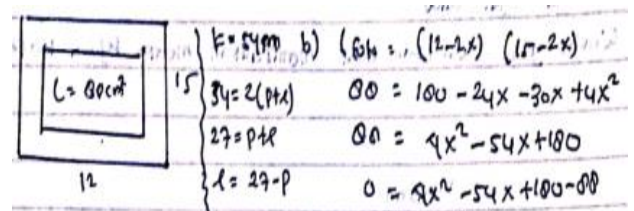 L = 80cm²
15
12
K = 54 cm
54 = 2(p+l)
27 = p+l
l = 27-p
b) (12-2x) (15-2x)
80 = 180 - 24x - 30x + 4x²
80 = 4x² - 54x + 180
0 = 4x² - 54x + 180 - 80